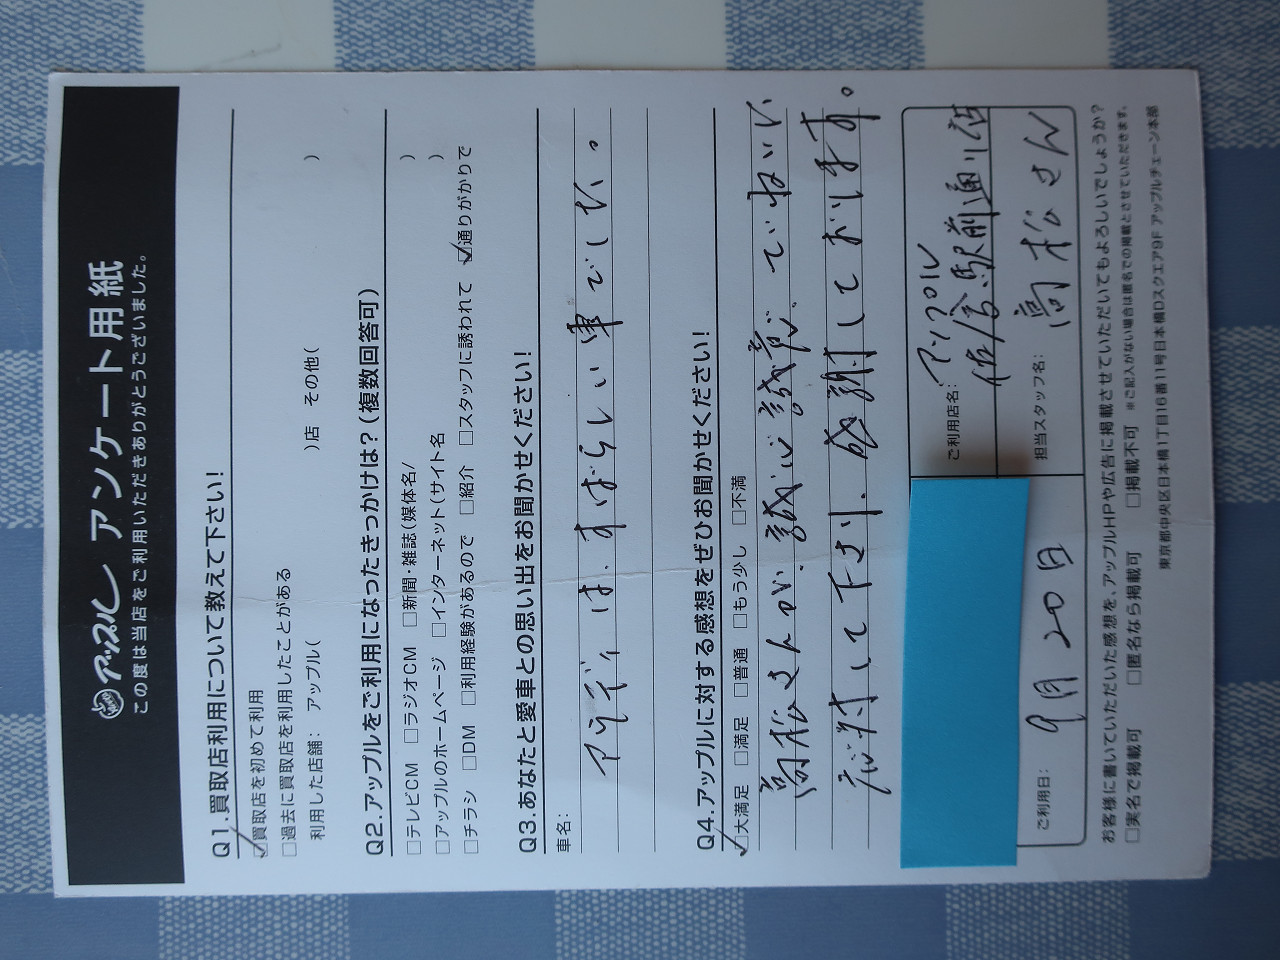 アップル アンケート用紙
この度は当店をご利用いただきありがとうございました。
Q1.買取店利用について教えて下さい!
☑買取店を初めて利用
□過去に買取店を利用したことがある
利用した店舗: アップル( )店 その他( )
Q2.アップルをご利用になったきっかけは?(複数回答可)
□テレビCM □ラジオCM □新聞・雑誌(媒体名/ )
□アップルのホームページ □インターネット(サイト名 )
□チラシ □DM □利用経験があるので □紹介 □スタッフに誘われて ☑通りがかりで
Q3.あなたと愛車との思い出をお聞かせください!
車名:
アウディは、すばらしい車でした。
Q4.アップルに対する感想をぜひお聞かせください!
☑大満足 □満足 □普通 □もう少し □不満
高松さんが、誠心誠意、ていねいに
応対して下さり、感謝しております。
ご利用店名: アップル
佐久駅前通り店
ご利用日: 9月20日
担当スタッフ名: 高松さん
お客様に書いていただいた感想を、アップルHPや広告に掲載させていただいてもよろしいでしょうか?
□実名で掲載可 □匿名なら掲載可 □掲載不可 ※ご記入がない場合は匿名での掲載とさせていただきます。
東京都中央区日本橋1丁目16番11号日本橋Dスクエア9F アップルチェーン本部